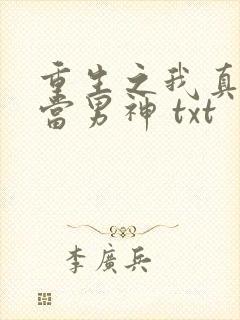 重生之我真
當男神 txt
李廣兵